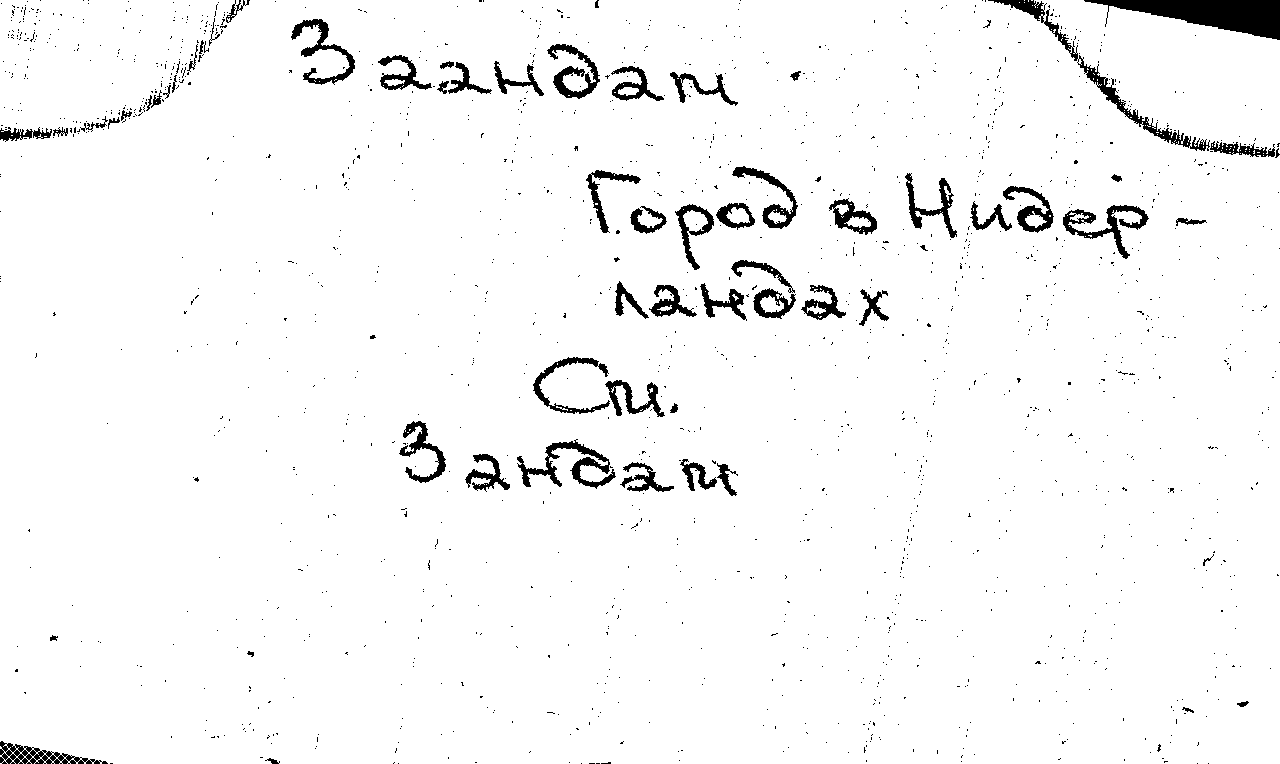 Заандам
Город в Нидер-
ландах
См.
Зандам